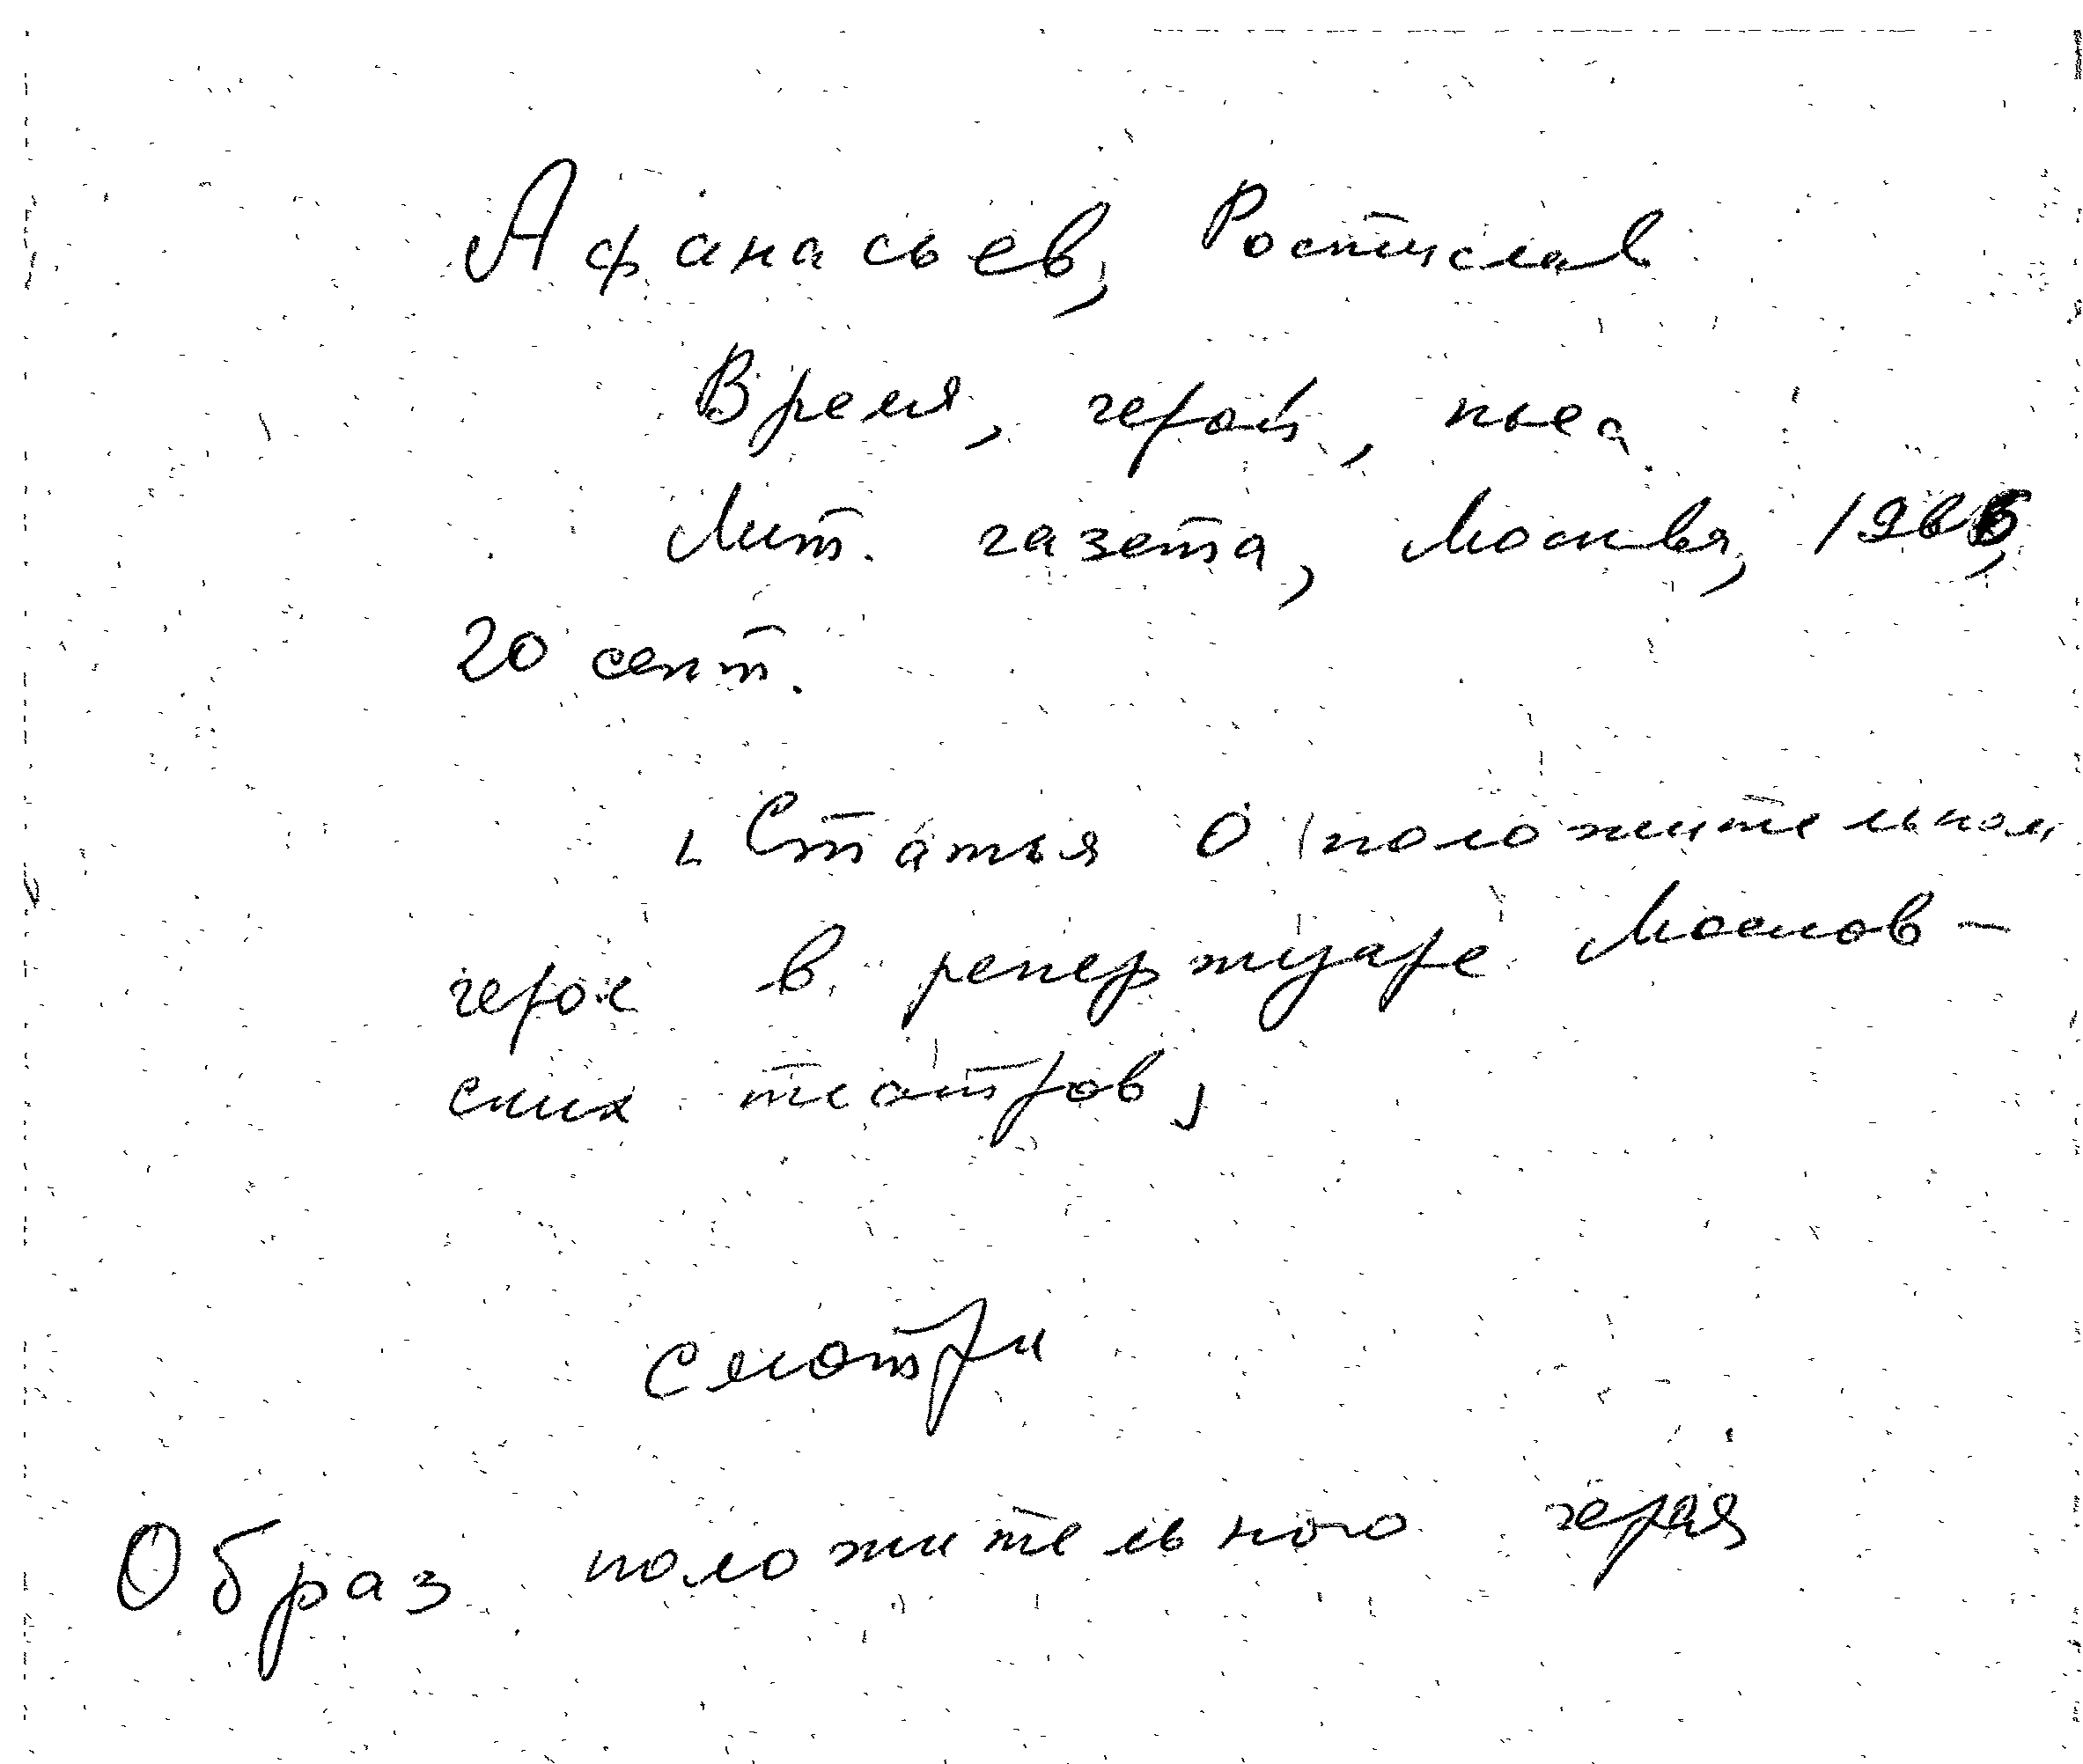 Афанасьев, Ростислав
Время, герой, пьеса
Лит. газета, Москва, 1966,
20 сент.
[Статья о положительном
герое в репертуаре Москов-
ских театров]
смотри
Образ положительного героя